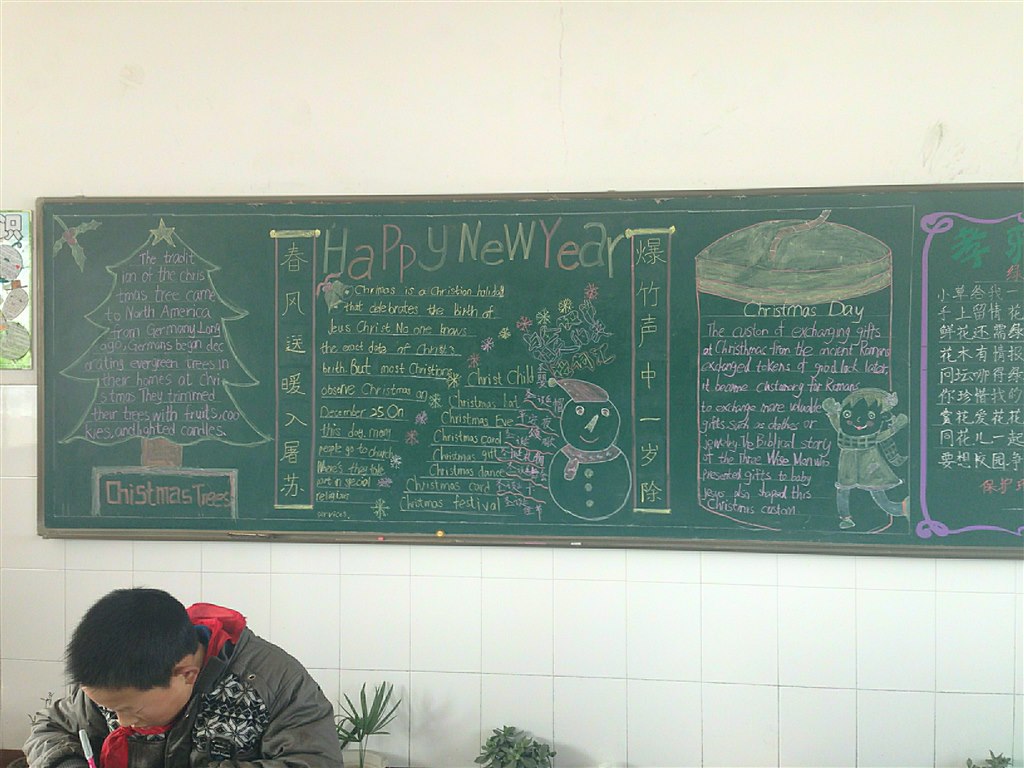 识
The tradit
ion of the chris
tmas tree came
to North America
from Germany Long
ago, Germans began dec
orating evergreen trees in
their homes at Chri
stmas They trimmed
their trees with fruits, coo
kies, and lighted candles.
Christmas Trees
春风送暖入屠苏
HaPPy NeWYear
Chrimas is a Christian holiday
that celebrates the birth of
Jeus Christ No one knows
the exact date of Christ's
brith. But most Christions
observe Christmas on
December 25, On
this day, many
people go to church
take
part in special
religious
services.
Christ Child
Christmas hat
Christmas Eve
Christmas carol
Christmas gift
Christmas dance
Christmas card
Christmas festival
爆竹声中一岁除
Christmas Day
The custon of exchanging gifts
at Christhmas from the ancient Romans
exchanged tokens of good luck later,
it became customary for Romans
to exchange more valuable
gifts such as clothes or
jewelry. The Biblical story
of the Three Wise Men who
presented gifts to baby
Jesus also shaped this
Christmas custom.
小草给我一
手上留情花
鲜花还需绿
花木有情报
同坛
你珍惜我的
赏花爱花花
同花儿一起
要想校园净
保护环